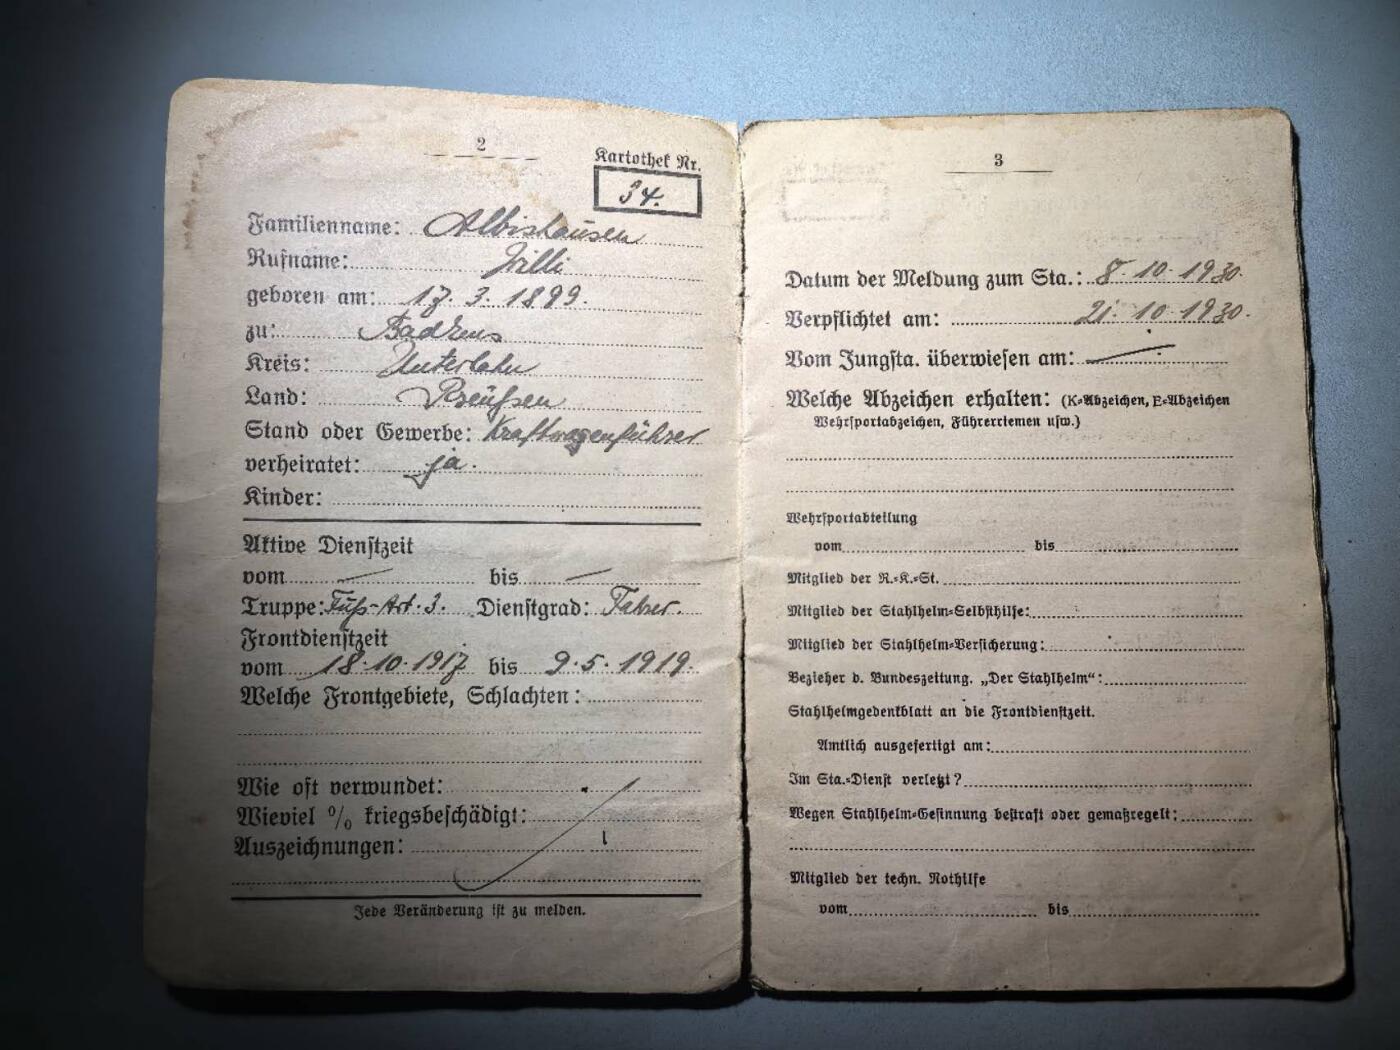 2
Kartothek Nr.
34.
Familienname: Albishausen
Rufname: Willi
geboren am: 17. 3. 1899.
zu: Bad Ems
Kreis: Unterlahn
Land: Preußen
Stand oder Gewerbe: Kraftwagenführer
verheiratet: ja.
Kinder:
Aktive Dienstzeit
vom — bis —
Truppe: Fuß-Art. 3. Dienstgrad: Fahrer.
Frontdienstzeit
vom 18.10.1917 bis 9.5.1919.
Welche Frontgebiete, Schlachten:
Wie oft verwundet:
Wieviel % kriegsbeschädigt:
Auszeichnungen:
Jede Veränderung ist zu melden.
3
Datum der Meldung zum Sta.: 8.10.1930.
Verpflichtet am: 21.10.1930.
Vom Jungsta. überwiesen am: —
Welche Abzeichen erhalten: (K=Abzeichen, E=Abzeichen
Wehrsportabzeichen, Führerriemen usw.)
Wehrsportabteilung
vom bis
Mitglied der R.=K.=St.
Mitglied der Stahlhelm=Selbsthilfe:
Mitglied der Stahlhelm=Versicherung:
Bezieher d. Bundeszeitung. „Der Stahlhelm“:
Stahlhelmgedenkblatt an die Frontdienstzeit.
Amtlich ausgefertigt am:
Im Sta.=Dienst verletzt?
Wegen Stahlhelm=Gesinnung bestraft oder gemaßregelt:
Mitglied der techn. Nothilfe
vom bis